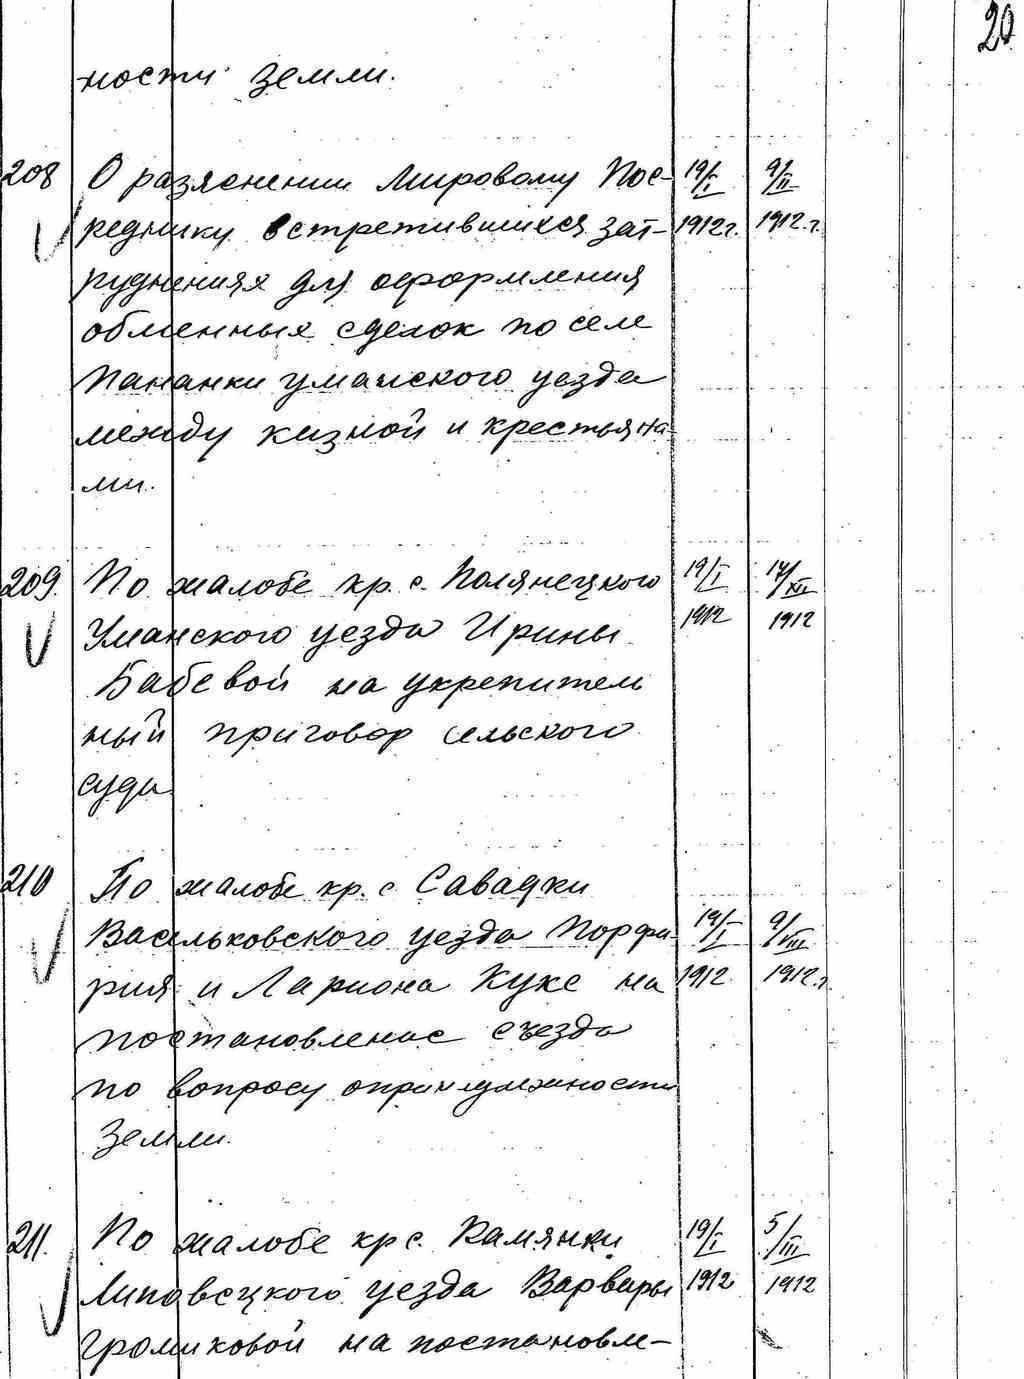 20
ности земли.
208 О разяснении Мировому Пос- 19/I 9/II
реднику встретившихся зат- 1912 г. 1912. г.
руднениях для оформления
обменных сделок по селе
Пананки уманского уезда
между казной и крестьяна-
ми.
209. По жалобе кр. с. Полянецкого 19/I 14/XII
Уманского уезда Ирины 1912 1912
Бабевой на укрепитель
ный приговор сельского
суда
210 По жалобе кр. с Савадки
Васильковского уезда Порфи- 19/I 9/VIII
рия и Лариона Куке на 1912 1912. г.
постановление съезда
по вопросу о принадлежности
Земли.
211. По жалобе кр с. Камянки 19/I 5/III
Липовецкого уезда Варвары 1912 1912
Громиковой на постановле-